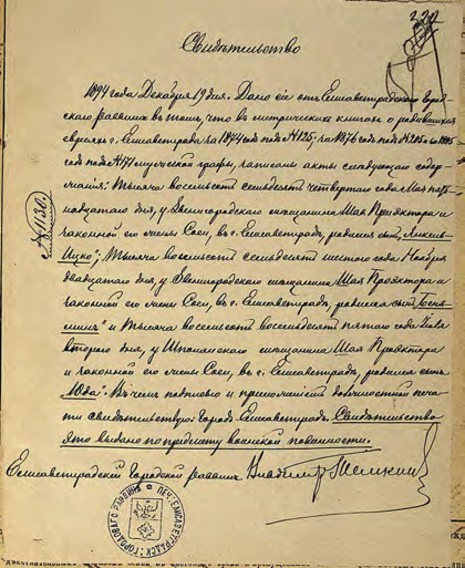 220
Свидѣтельство
1894 года Декабря 19 дня. Дано сіе отъ Елисаветградскаго Город-
скаго раввина въ томъ, что въ метрическихъ книгахъ о родившихся
евреяхъ г. Елисаветграда за 1874 годъ подъ № 125; за 1876 годъ подъ № 205 и за 1885
годъ подъ № 171 мужеской графы, записаны акты слѣдующаго содер-
жанія: Тысяча восемьсотъ семьдесятъ четвертаго года Мая
надцатаго дня, у Звенигородскаго мѣщанина Шая Проэктора и
законной его жены Саси, въ г. Елисаветградѣ, родился сынъ
Ицко"; Тысяча восемьсотъ семьдесятъ шестого года Ноября
двадцатаго дня, у Звенигородскаго мѣщанина Шая Проэктора и
законной его жены Саси, въ г. Елисаветградѣ, родился сынъ
и Тысяча восемьсотъ восемьдесятъ пятаго года
второго дня, у Шполянскаго мѣщанина Шая Проэктора
и законной его жены Саси, въ г. Елисаветградѣ, родился сынъ
"Юда". Въ чемъ подписью и приложеніемъ должностной печа-
ти свидѣтельствую: Городъ Елисаветградъ. Свидѣтельство
это выдано по предмету воинской повинности.
Елисаветградскій Городской раввинъ Владимиръ
№ 1130.
ПЕЧ. ЕЛИСАВЕТГРАДСК. ГОРОДОВАГО РАВВИНА